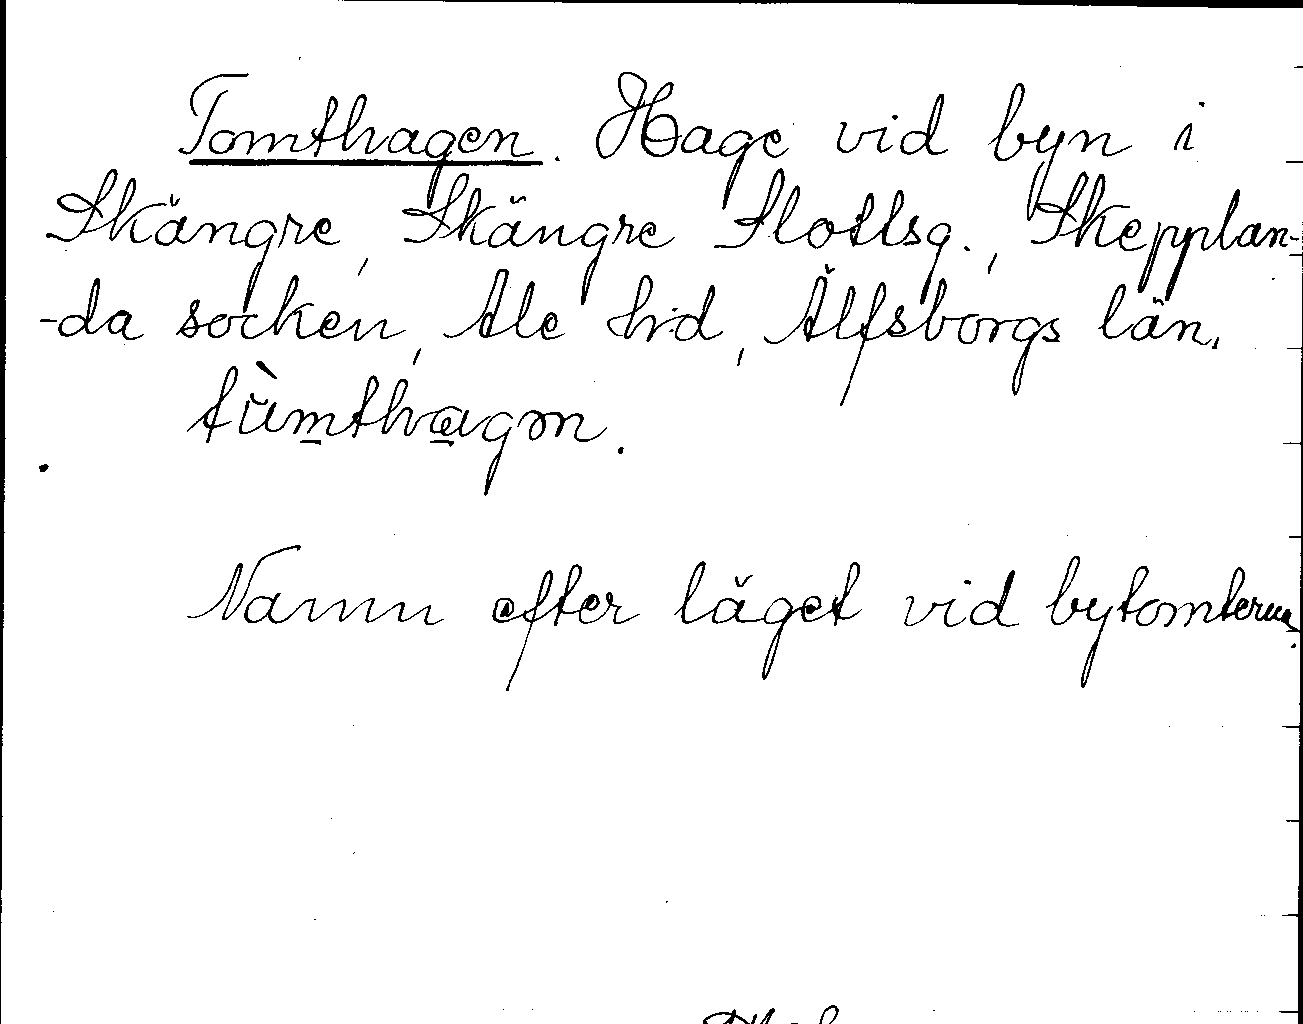 Tomthagen. Hage vid byn i
Skängre, Skängre Slottsg., Skepplan-
-da socken, Ale hd, Älfsborgs län.
tùmthagən.
Namn efter läget vid bytomterna.